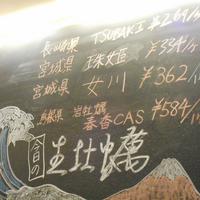 長崎県 TSUBAKI ¥269/
宮城県 珠姫 ¥334/
宮城県 女川 ¥362/
島根県 岩牡蠣 春香CAS ¥584/
今日の
生牡蠣